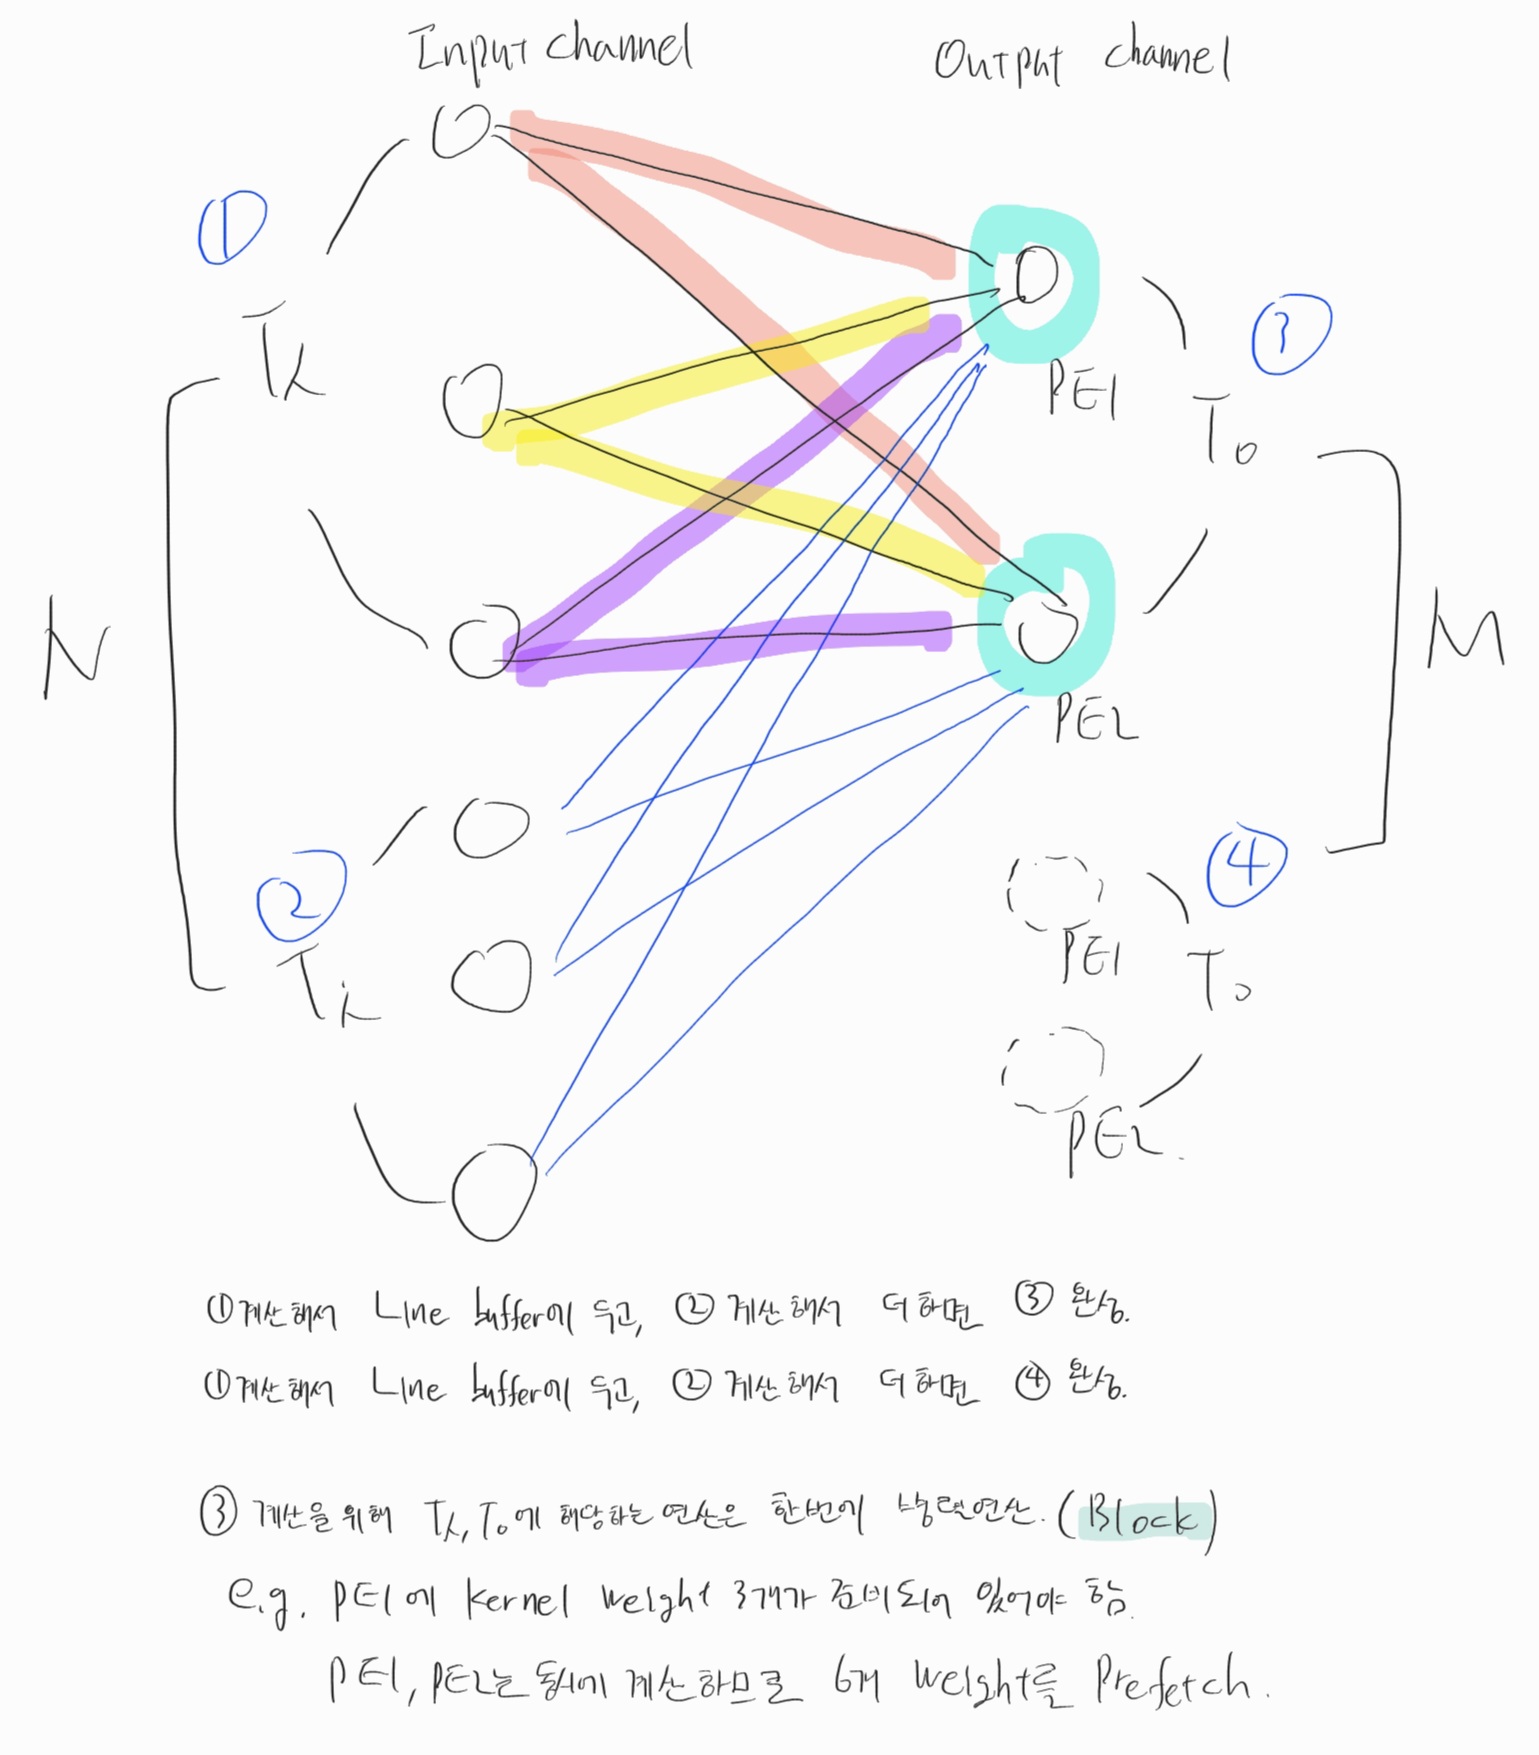 Input channel
Output channel
①
Ti
③
PE1
To
N
M
PE2
②
Ti
④
PE1
To
PE2.
①계산해서 Line buffer에 두고, ② 계산해서 더하면 ③ 완성.
①계산해서 Line buffer에 두고, ② 계산해서 더하면 ④ 완성.
③ 계산을 위해 Ti, To에 해당하는 연산은 한번에 병렬연산. (Block)
e.g. PE1에 kernel weight 3개가 준비되어 있어야 함.
PE1, PE2는 동시에 계산하므로 6개 weight를 Prefetch.